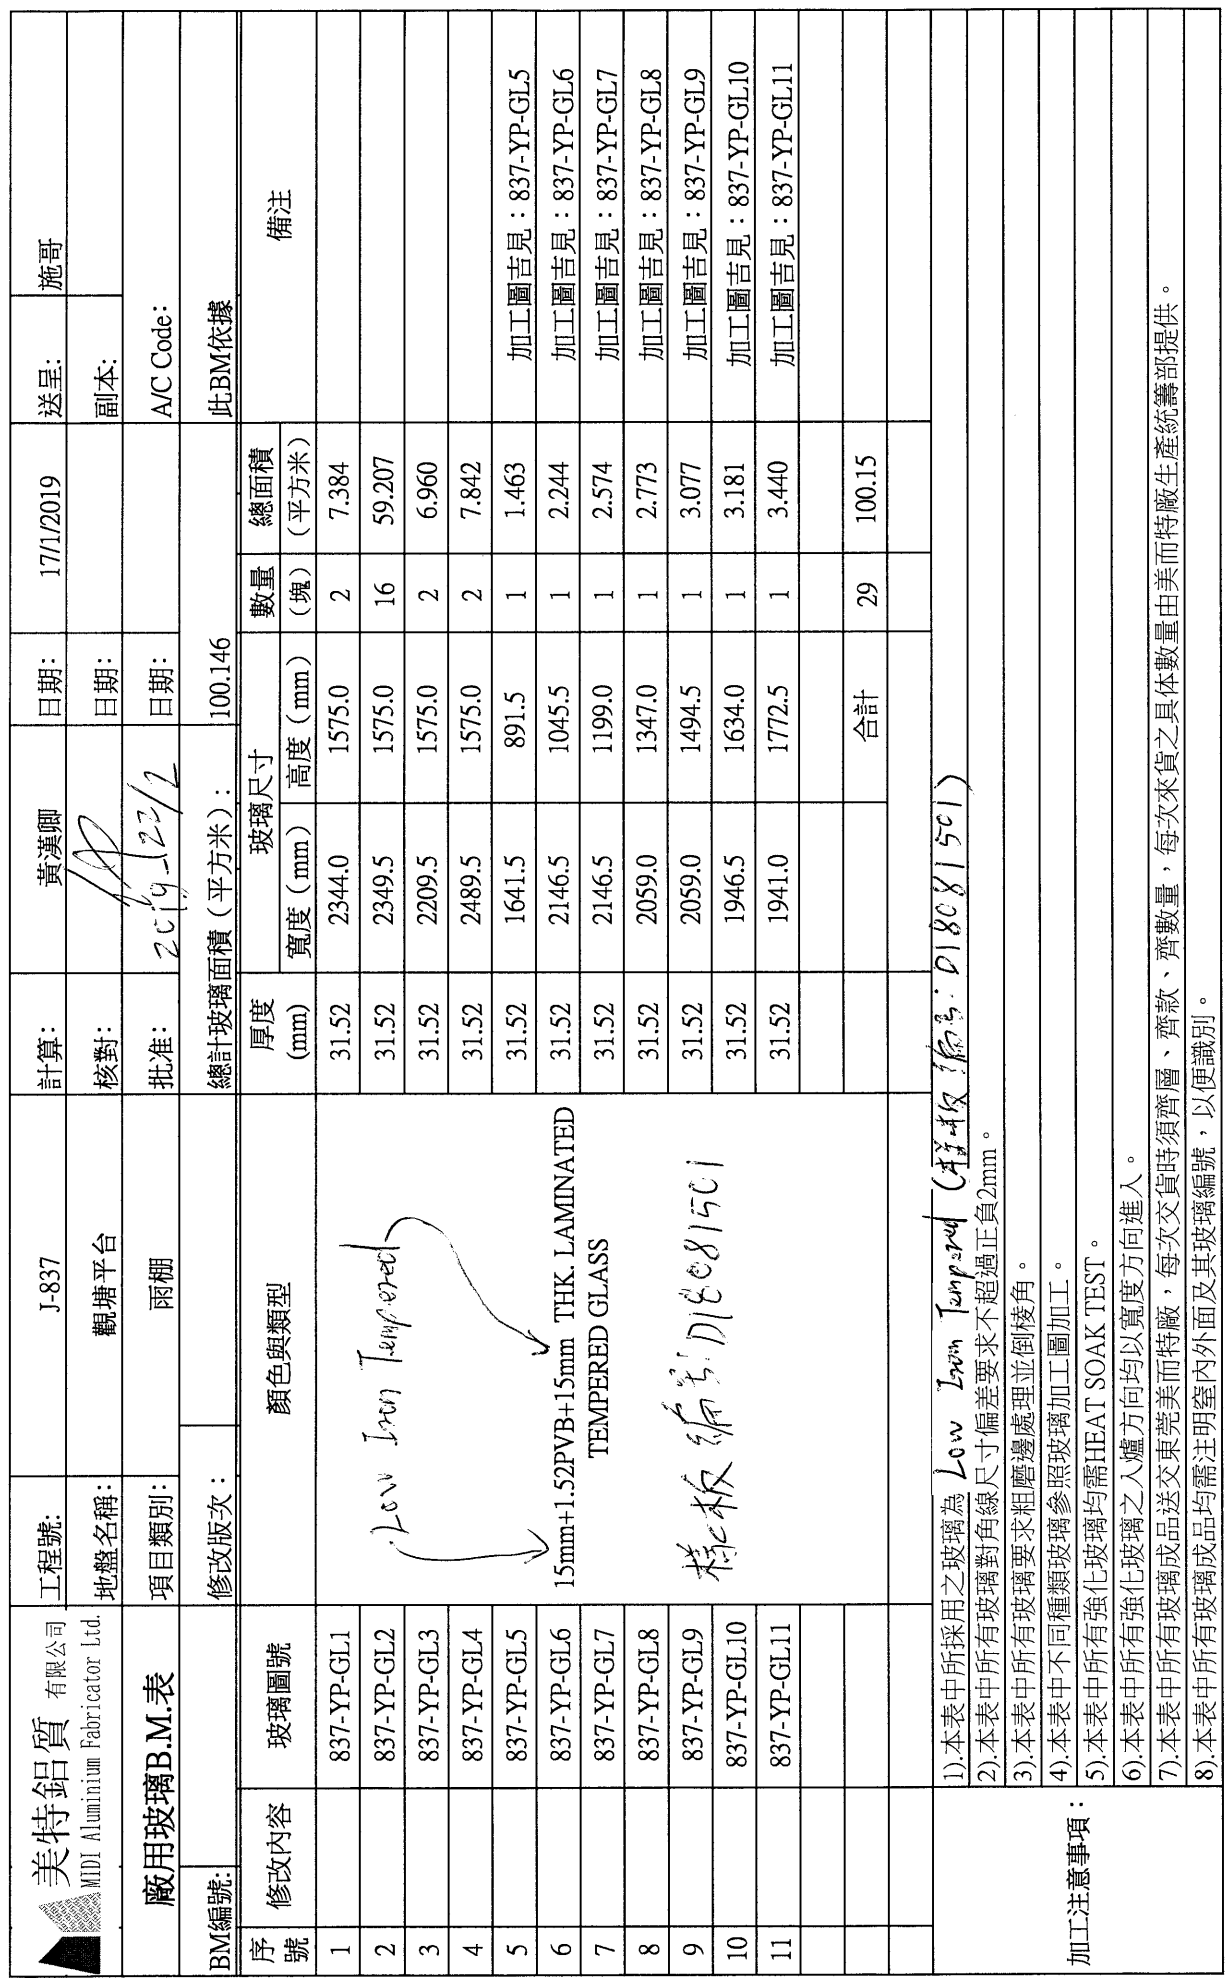 美特鋁質 有限公司
MIDI Aluminium Fabricator Ltd.
工程號: J-837 計算: 黃漢卿 日期: 17/1/2019 送呈: 施哥
地盤名稱: 觀塘平台 核對: 日期: 副本:
廠用玻璃B.M.表
項目類別: 雨棚 批准: 2019-22/2 日期: A/C Code:
BM編號: 修改版次: 總計玻璃面積(平方米): 100.146 此BM依據
序號 修改內容 玻璃圖號 顏色與類型 厚度(mm) 玻璃尺寸 寬度(mm) 高度(mm) 數量(塊) 總面積(平方米) 備注
1 837-YP-GL1 31.52 2344.0 1575.0 2 7.384
2 837-YP-GL2 31.52 2349.5 1575.0 16 59.207
3 837-YP-GL3 31.52 2209.5 1575.0 2 6.960
4 837-YP-GL4 31.52 2489.5 1575.0 2 7.842
5 837-YP-GL5 31.52 1641.5 891.5 1 1.463 加工圖吉見:837-YP-GL5
6 837-YP-GL6 31.52 2146.5 1045.5 1 2.244 加工圖吉見:837-YP-GL6
7 837-YP-GL7 31.52 2146.5 1199.0 1 2.574 加工圖吉見:837-YP-GL7
8 837-YP-GL8 31.52 2059.0 1347.0 1 2.773 加工圖吉見:837-YP-GL8
9 837-YP-GL9 31.52 2059.0 1494.5 1 3.077 加工圖吉見:837-YP-GL9
10 837-YP-GL10 31.52 1946.5 1634.0 1 3.181 加工圖吉見:837-YP-GL10
11 837-YP-GL11 31.52 1941.0 1772.5 1 3.440 加工圖吉見:837-YP-GL11
Low Iron Tempered
15mm+1.52PVB+15mm THK. LAMINATED
TEMPERED GLASS
樣板編号:D18081501
合計 29 100.15
加工注意事項:
1).本表中所採用之玻璃為 Low Iron Tempered (樣板編号:D18081501)
2).本表中所有玻璃對角線尺寸偏差要求不超過正負2mm。
3).本表中所有玻璃要求粗磨邊處理並倒棱角。
4).本表中不同種類玻璃參照玻璃加工圖加工。
5).本表中所有強化玻璃均需HEAT SOAK TEST。
6).本表中所有強化玻璃之入爐方向均以寬度方向進入。
7).本表中所有玻璃成品送交東莞美而特廠,每次交貨時須齊層、齊款、齊數量,每次來貨之具体數量由美而特廠生產統籌部提供。
8).本表中所有玻璃成品均需注明室內外面及其玻璃編號,以便識別。